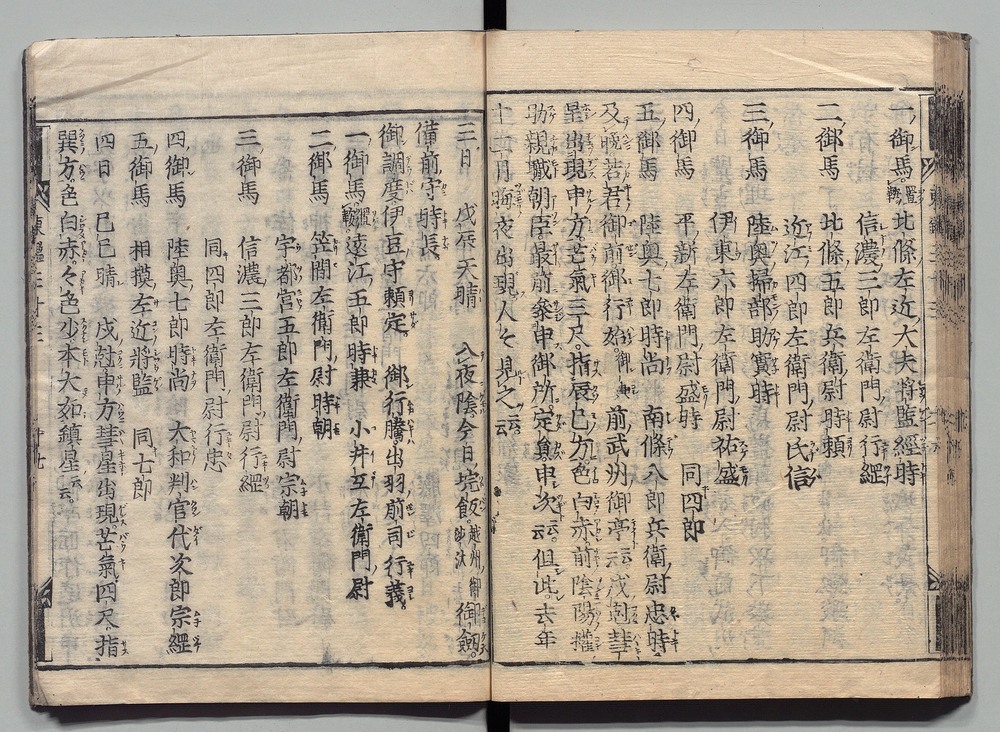 一御馬置鞍北條左近大夫將監經時
信濃三郎左衛門尉行經
二御馬 北條五郎兵衛尉時頼
近江四郎左衛門尉氏信
三御馬 陸奥掃部助實時
伊東六郎左衛門尉祐盛
四御馬 平新左衛門尉盛時 同四郎
五御馬 陸奥七郎時尚 南條八郎兵衛尉忠時
及晩若君御前御行始 前武州御亭云云戌尅彗
星出現申方芒氣三尺指辰巳方色白赤前陰陽權
助親職朝臣最前參申御所定員申次云云但此去年
十二月晦夜出現人々見之云云
三日 戊辰天晴 入夜陰今日垸飯越州御沙汰御劔
備前守時長
御調度伊豆守頼定 御行騰出羽前司行義
一御馬置鞍遠江五郎時兼 小井弖左衛門尉
二御馬 笠間左衛門尉時朝
宇都宮五郎左衛門尉宗朝
三御馬 信濃三郎左衛門尉行經
同四郎左衛門尉行忠
四御馬 陸奥七郎時尚 大和判官代次郎宗經
五御馬 相摸左近將監 同七郎
四日 巳巳晴 戌尅申方彗星出現芒氣四尺指
巽方色白赤々色少本大如鎮星云云
東鑑三十三 廿七